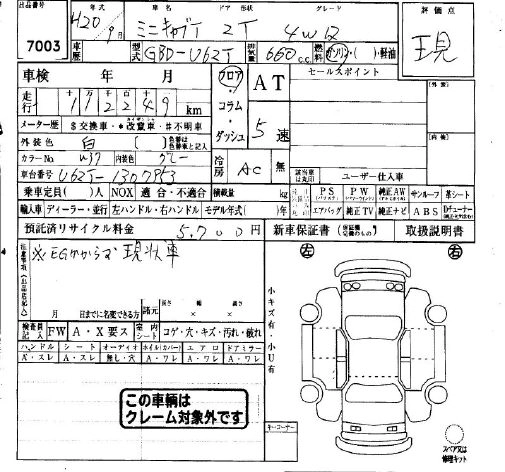 出品番号 7003
H20 9月 ミニキャブT 2T 4WD
初年度 月 車名 ドア 形状 グレード
評価点 現
車歴 型式 GBD-U62T 排気量 660c.c. 燃料 ガソリン・( )・軽油
車検 年 月
フロア・コラム・ダッシュ AT 5速
セールスポイント
走行 十1万1千2百2十4 9 km
メーター歴 $交換車・*改竄車・#不明車
外装色 白 ( ) 色替車は 色替車と記入
カラーNo W37 内装色 グレー
冷房 AC 無
ユーザー仕入車
車台番号 U62T-1307853
乗定員( )人 NOX 適合・不適合 積載量 kg
PS PW 純正AW サンルーフ 革シート
輸入車 ディーラー・並行 左ハンドル・右ハンドル モデル年式( )年
エアバッグ 純正TV 純正ナビ ABS Dチューナー
預託済リサイクル料金 5,700円
新車保証書 取扱説明書
※EGかからず 現状車
左 右
月 日までに名変できる方
諸元 長さ 幅 高さ × ×
小キズ有・小U有
検査員記入 FW A・X要ス 室内シート コゲ・穴・キズ・汚れ・破れ
ハンドル シート オーディオ ホイル(カバー) エアロ ドアミラー
A・スレ A・スレ 無し・穴 A・ワレ A・ワレ A・ワレ
この車輌は
クレーム対象外です
キーコーナー
スペア又は
修理キット